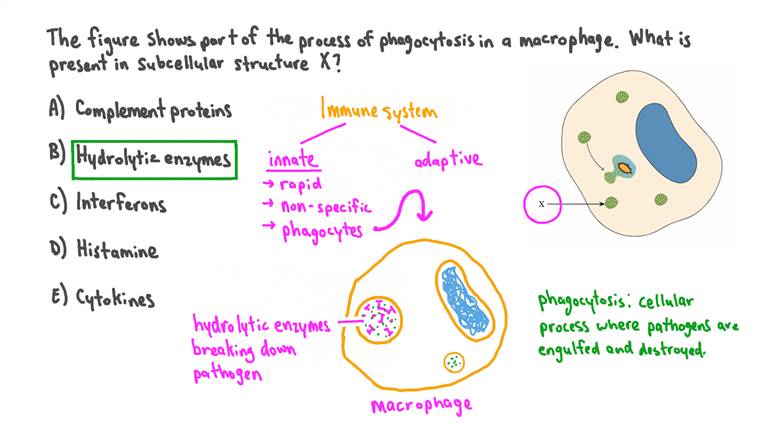 The figure shows part of the process of phagocytosis in a macrophage. What is
present in subcellular structure X?
A) Complement proteins
B) Hydrolytic enzymes
C) Interferons
D) Histamine
E) Cytokines
Immune system
innate
→ rapid
→ non-specific
→ phagocytes
adaptive
X
hydrolytic enzymes
breaking down
pathogen
macrophage
phagocytosis: cellular
process where pathogens are
engulfed and destroyed.